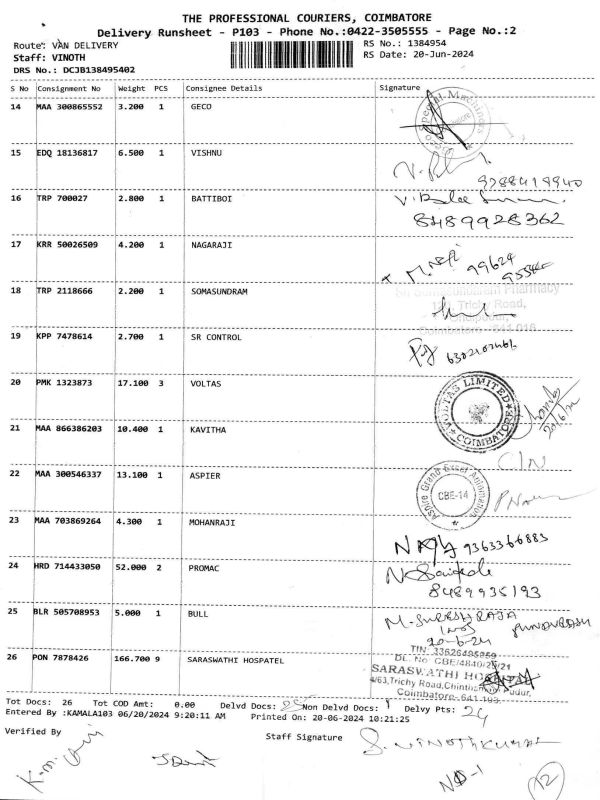 THE PROFESSIONAL COURIERS, COIMBATORE
Delivery Runsheet - P103 - Phone No.:0422-3505555 - Page No.:2
Route: VAN DELIVERY RS No.: 1384954
Staff: VINOTH RS Date: 20-Jun-2024
DRS No.: DCJB138495402
S No Consignment No Weight PCS Consignee Details Signature
14 MAA 300865552 3.200 1 GECO
15 EDQ 18136817 6.500 1 VISHNU
9788419940
16 TRP 700027 2.800 1 BATTIBOI
8489928362
17 KRR 50026509 4.200 1 NAGARAJI
99624
18 TRP 2118666 2.200 1 SOMASUNDRAM
Pharmacy
Trichy Road,
19 KPP 7478614 2.700 1 SR CONTROL
20 PMK 1323873 17.100 3 VOLTAS
VOLTAS LIMITED
COIMBATORE
21 MAA 866386203 10.400 1 KAVITHA
22 MAA 300546337 13.100 1 ASPIER
CBE-14
23 MAA 703869264 4.300 1 MOHANRAJI
9363366883
24 HRD 714433050 52.000 2 PROMAC
8489935193
25 BLR 505708953 5.000 1 BULL
M. SURESH RAJA
20-6-24
26 PON 7878426 166.700 9 SARASWATHI HOSPATEL
SARASWATHI HOSPITAL
4/63,Trichy Road,
Coimbatore-641 103
Tot Docs: 26 Tot COD Amt: 0.00 Delvd Docs: 25 Non Delvd Docs: 1 Delvy Pts: 24
Entered By :KAMALA103 06/20/2024 9:20:11 AM Printed On: 20-06-2024 10:21:25
Verified By Staff Signature S. VINOTHKUMAR
ND-1 12